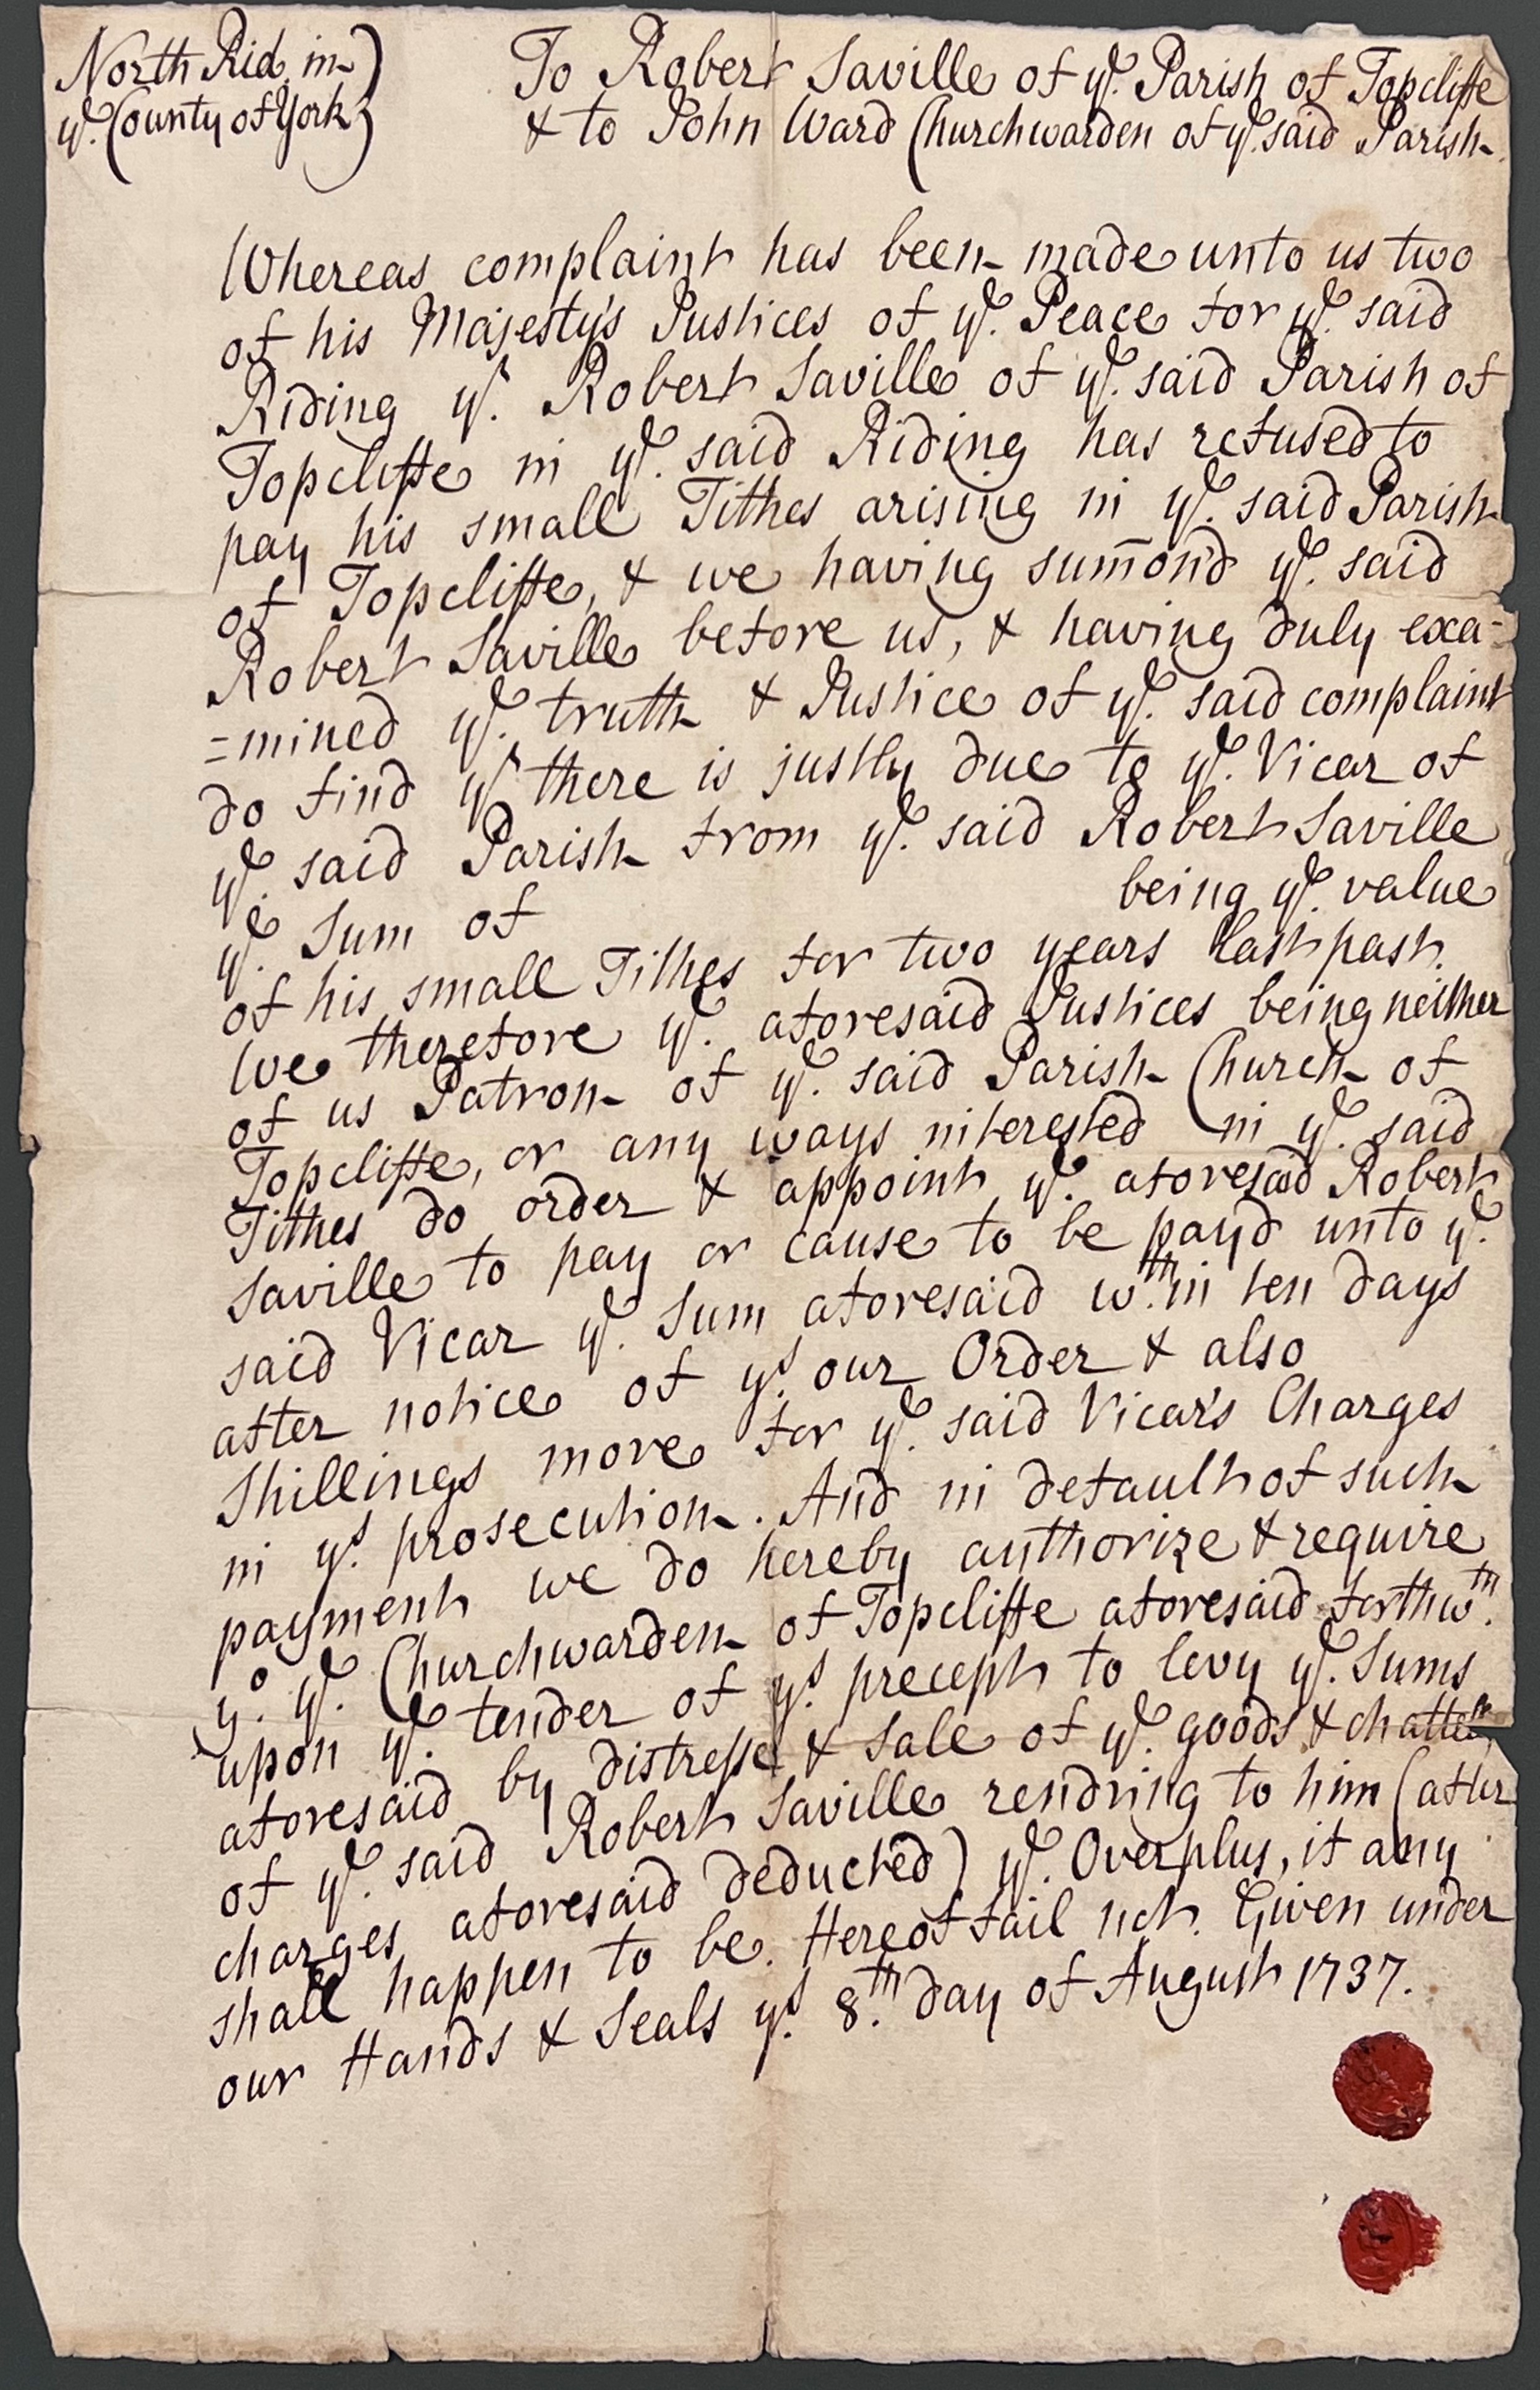 North Rid. in
yᵉ. County of York
To Robert Saville of yᵉ. Parish of Topcliffe
& to John Ward Churchwarden of yᵉ. said Parish
Whereas complaint has been made unto us two
of his Majesty's Justices of yᵉ. Peace for yᵉ. said
Riding yᵗ. Robert Saville of yᵉ. said Parish of
Topcliffe in yᵉ. said Riding has refused to
pay his small Tithes arising in yᵉ. said Parish
of Topcliffe, & we having sum̄on'd yᵉ. said
Robert Saville before us, & having duly exa=
=mined yᵉ. truth & Justice of yᵉ. said complaint
do find yᵗ there is justly due to yᵉ. Vicar of
yᵉ. said Parish from yᵉ. said Robert Saville
yᵉ. Sum of being yᵉ. value
of his small Tithes for two years last past.
We therefore yᵉ. aforesaid Justices being neither
of us Patron of yᵉ. said Parish Church of
Topcliffe, or any ways interested in yᵉ. said
Tithes do order & appoint yᵉ. aforesaid Robert
Saville to pay or cause to be pay'd unto yᵉ.
said Vicar yᵉ. Sum aforesaid wᵗʰ.in ten days
after notice of yˢ. our Order & also
Shillings more for yᵉ. said Vicar's Charges
in yˢ. prosecution. And in default of such
payment we do hereby authorize & require
yᵒ. yᵉ. Churchwarden of Topcliffe aforesaid forthwᵗʰ.
upon yᵉ. tender of yˢ. precept to levy yᵉ. Sums
aforesaid by distresse & Sale of yᵉ. goods & chattels
of yᵉ. said Robert Saville rendring to him (after
charges aforesaid deducted) yᵉ. Overplus, if any
shall happen to be. Hereof fail not. Given under
our Hands & Seals yˢ. 8.ᵗʰ day of August 1737.